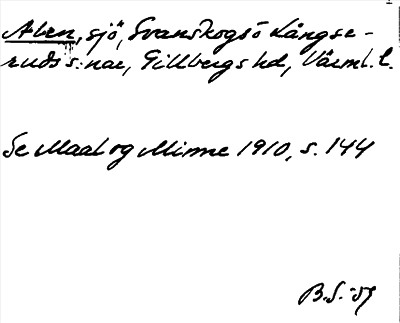 Aben, sjö, Svanskogs o Långse-
ruds s:nar, Gillbergs hd, Värml. l.
Se Maal og Minne 1910, s. 144
B.S. -59